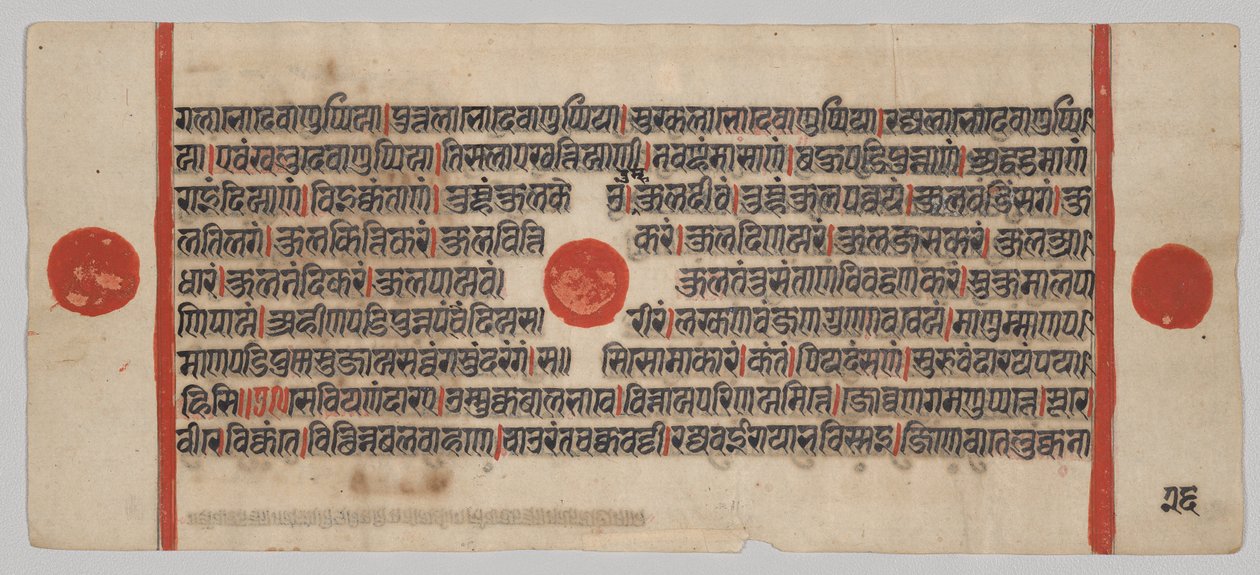 गलाभो देवाणुप्पिया।पुत्तलाभो देवाणुप्पिया।सुरकलाभो देवाणुप्पिया।रज्जलाभो देवाणुप्पि
या।एवं खलु देवाणुप्पिया।तिसला खत्तियाणी।नवण्हं मासाणं।बहुपडिपुन्नाणं।अद्धठमाणं
राइंदियाणं।विइक्कंताणं।तुम्हं कुलकेउं।कुलदीवं।तुम्हं कुलपव्वयं।कुलवडिंसगं।कु
लतिलगं।कुलकित्तिकरं।कुलवित्तिकरं।कुलदिणयरं।कुलजसकरं।कुलआ
धारं।कुलनंदिकरं।कुलपायवं।कुलतंतुसंताणविवद्धणकरं।सुकुमालपा
णिपायं।अहीणपडिपुन्नपंचिंदियसरीरं।लरकणवंजणगुणोववेयं।माणुम्माणप
माणपडिपुन्नसुजायसव्वंगसुंदरंगं।ससिसोमाकारं।कंतं।पियदंसणं।सुरूवं दारयं पया
हिसि॥७९॥से वि य णं दारए।उम्मुक्कबालभावे।विन्नायपरिणयमित्ते।जोव्वणगमणुप्पत्ते।सूरे
वीरे विक्कंते।विच्छिन्नबलवाहणे।चाउरंतचक्कवट्टी।रज्जवई राया भविस्सइ।जिणे वा तेलुक्कना
२६